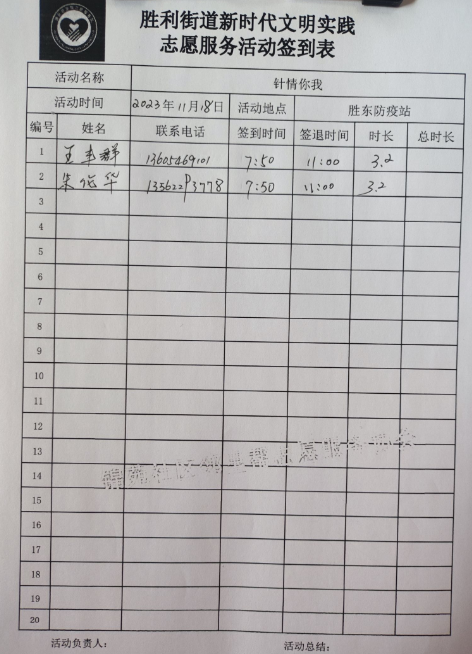 胜利街道新时代文明实践
志愿服务活动签到表
活动名称 针情你我
活动时间 2023年11月18日 活动地点 胜东防疫站
编号 姓名 联系电话 签到时间 签退时间 时长 总时长
1 王 群 13605469101 7:50 11:00 3.2
2 朱 华 7:50 11:00 3.2
3
4
5
6
7
8
9
10
11
12
13
14
15
16
17
18
19
20
活动负责人: 活动总结: